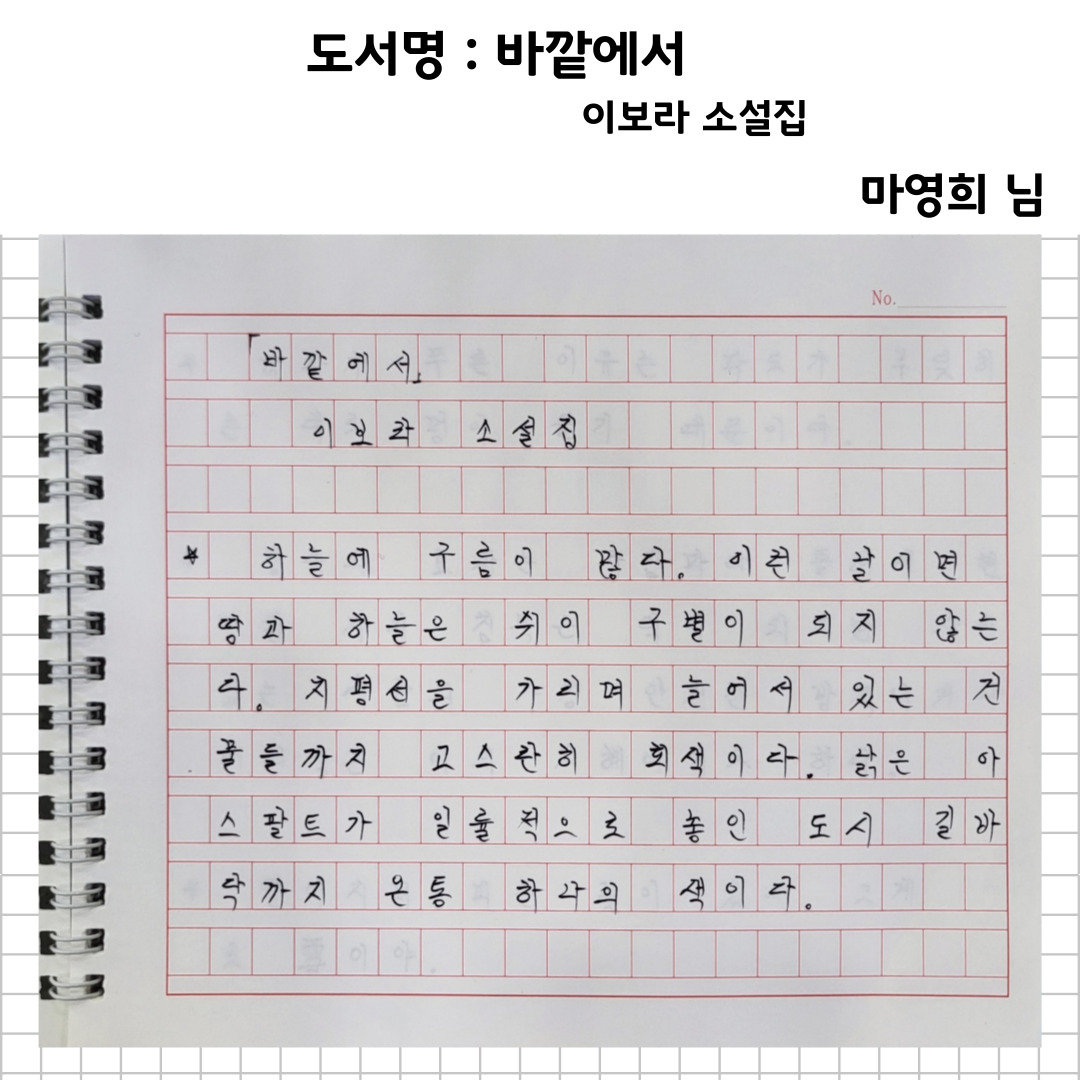 도서명 : 바깥에서
이보라 소설집
마영희 님
No.
「바깥에서」
이보라 소설집
* 하늘에 구름이 많다. 이런 날이면
땅과 하늘은 쉬이 구별이 되지 않는
다. 지평선을 가리며 늘어서 있는 건
물들까지 고스란히 회색이다. 낡은 아
스팔트가 일률적으로 놓인 도시 길바
닥까지 온통 하나의 색이다.